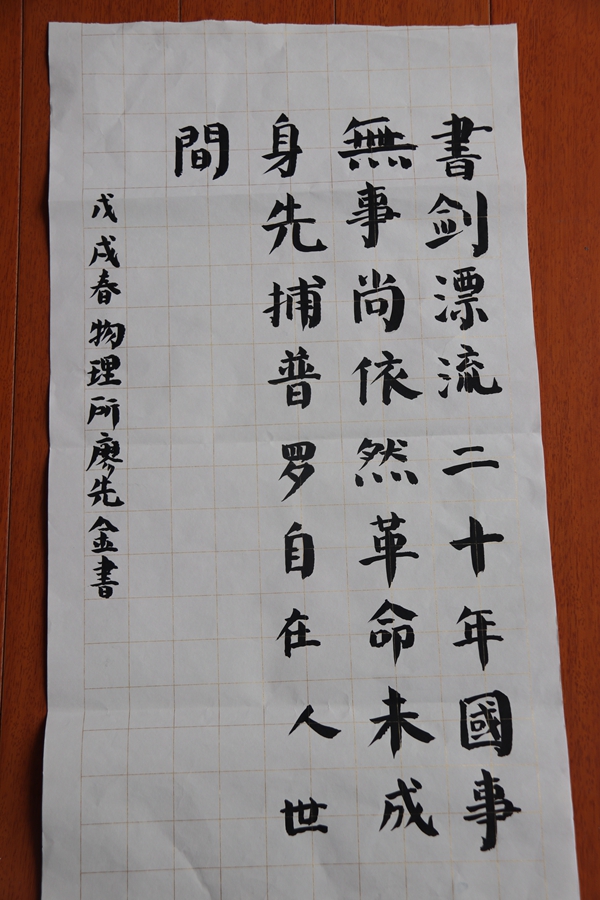 書剑漂流二十年國事
無事尚依然革命未成
身先捕普罗自在人世
間
戊戌春物理所廖先金書